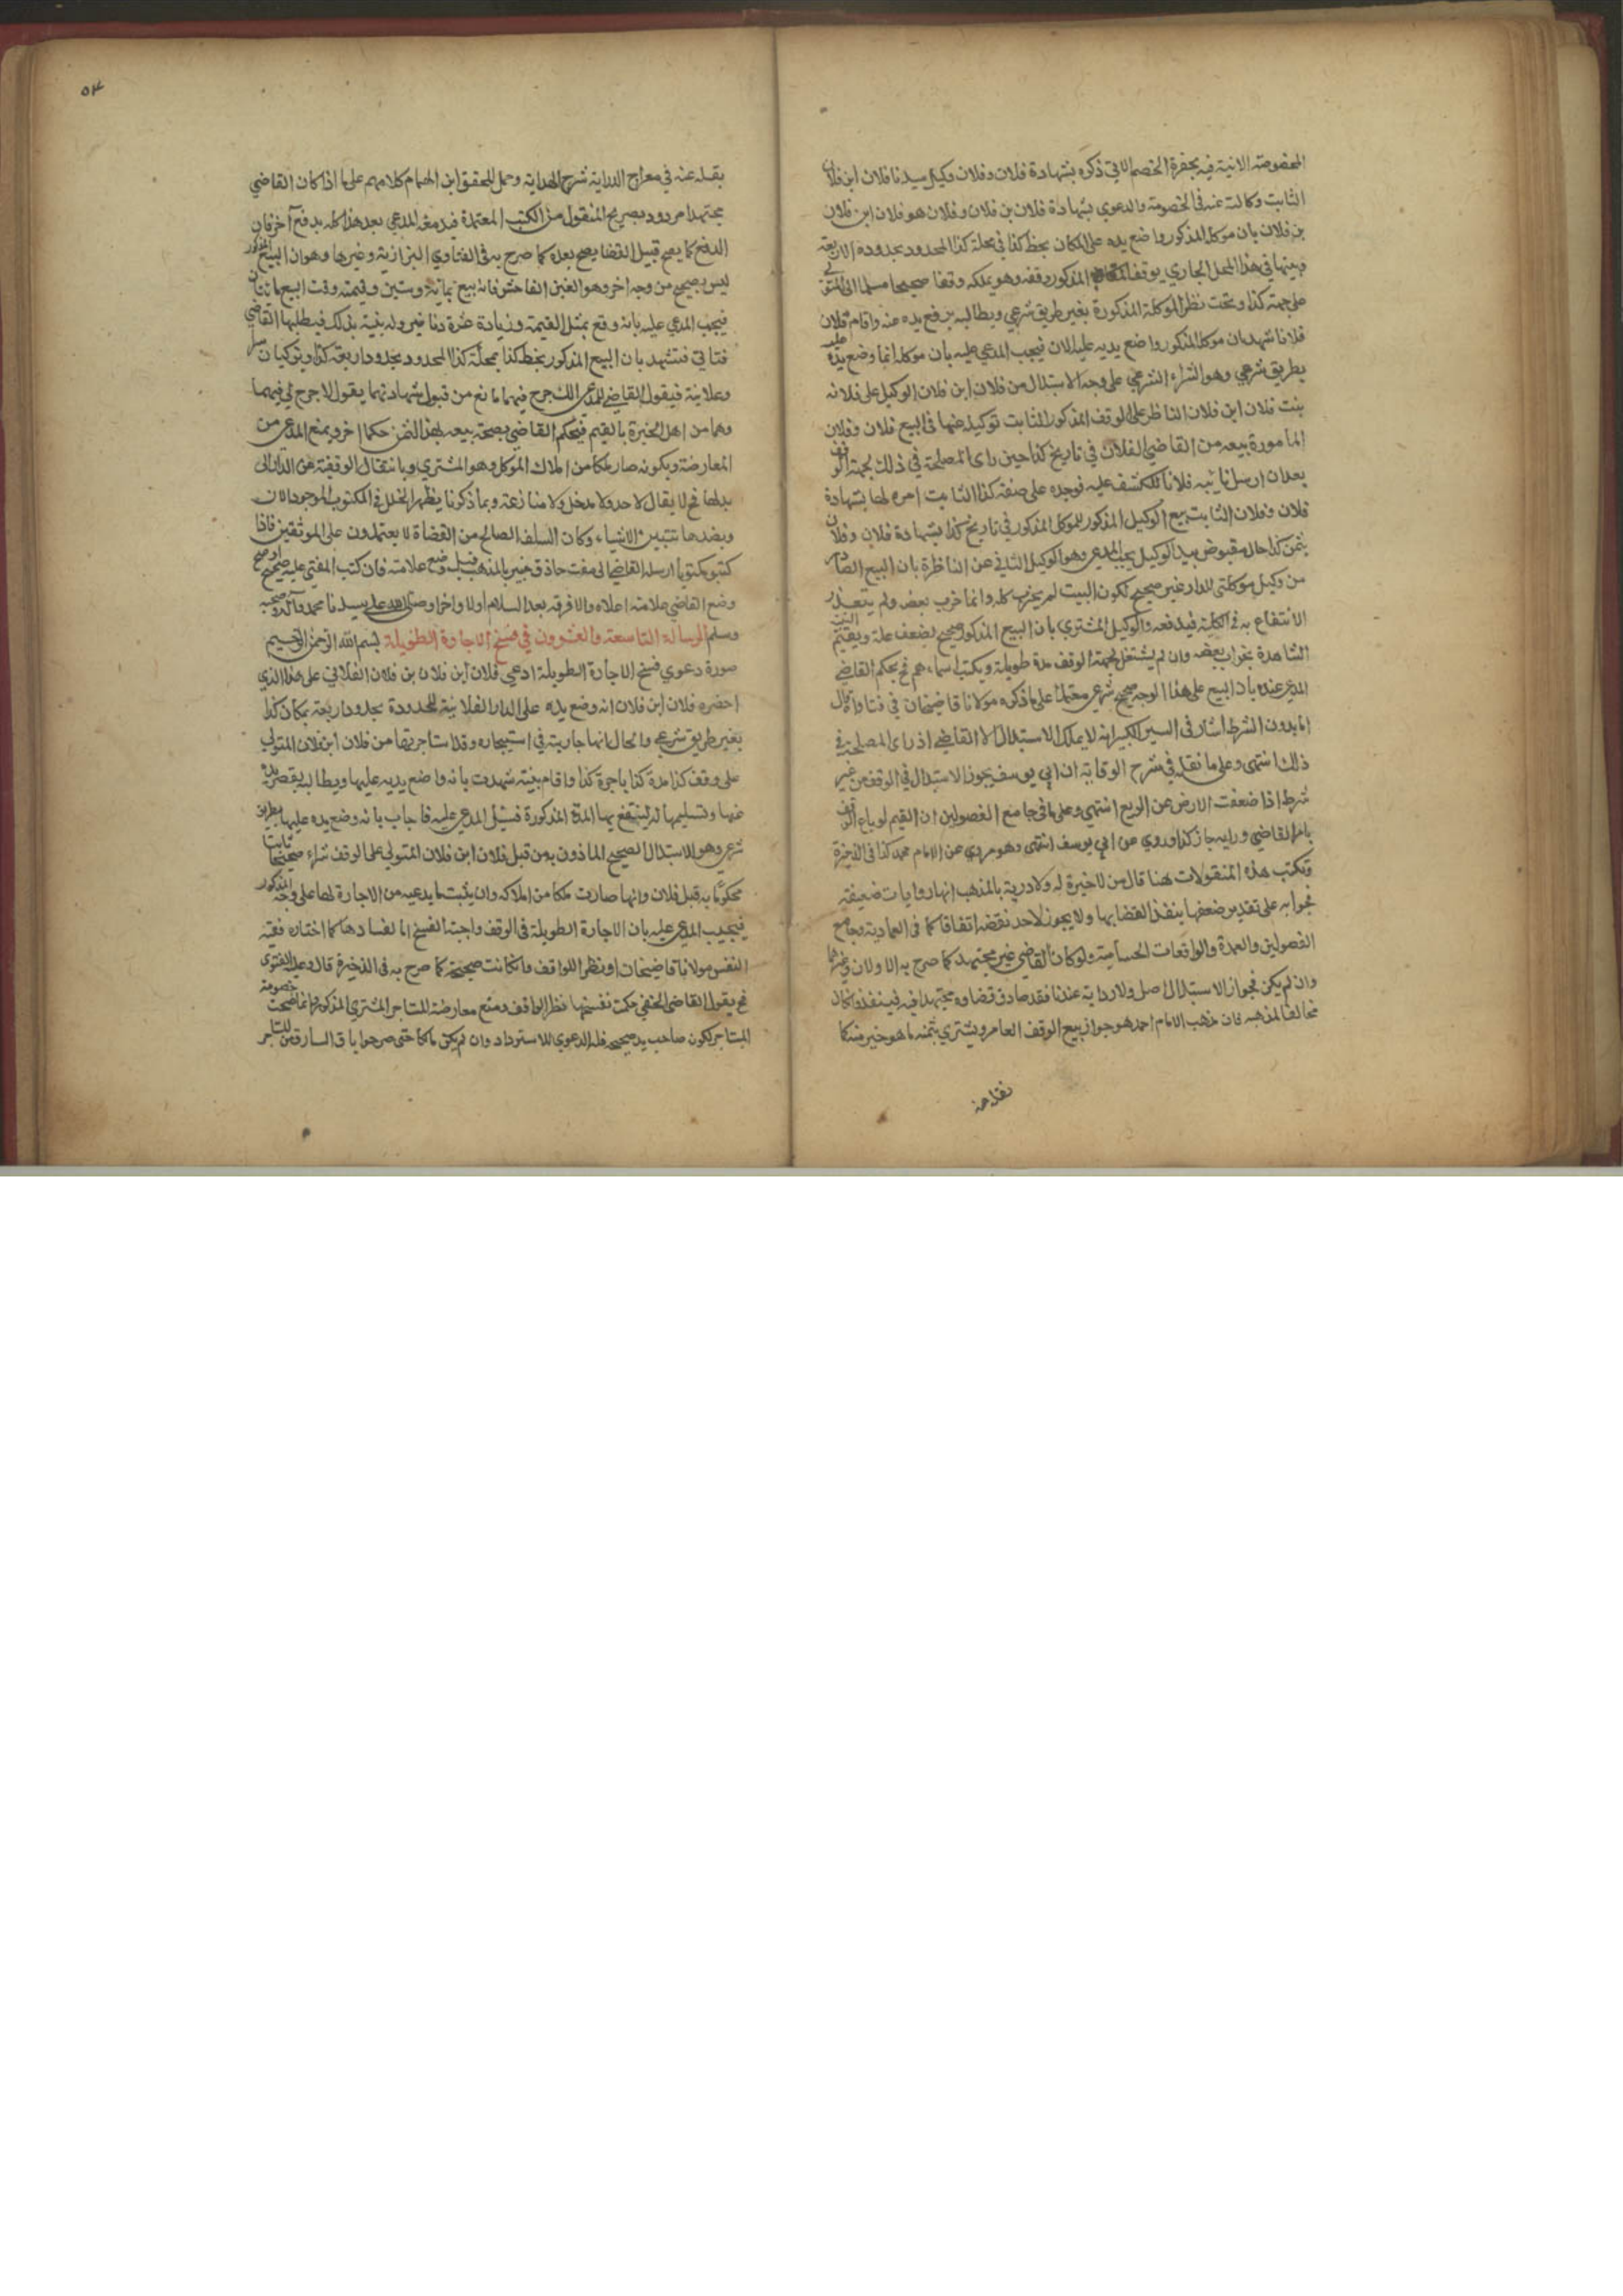 المخصومة الاتية فيه بحضرة الخصم الاتي ذكره بشهادة فلان وفلان وكيل سيدنا فلان ابن فلان
الثابت وكالته عنه في الخصومة والدعوي بشهادة فلان بن فلان وفلان هو فلان ابن فلان
بن فلان بان موكله المذكور واضع يده على المكان بخط كذا في محلة كذا المحدود بحدوده الاربعة
وبينها في هذا المحل الجاري يوقف المذكور وقفه وهو يملكه وقفا صحيحا مسلما الى المتولي
على جهة كذا وتحت نظر الموكلة المذكورة بغير طريق شرعي ويطالبه برفع يده عنه واقام فلان
فلانا شهد بان موكله المذكور واضع يديه عليه الان فيجب المدعي عليه بان موكله انما وضع يده عليه
بطريق شرعي وهو الشراء الشرعي على وجه الاستبدال من فلان ابن فلان الوكيل على فلانه
بنت فلان ابن فلان الناظر على الوقف المذكور الثابت توكيله عنها في البيع فلان وفلان
المامورة ببيعه من القاضي الفلان في تاريخ كذا حين راى المصلحة في ذلك لجهة الوقف
بعد ان ارسل نائبه فلانا للكشف عليه فوجده على صفة كذا الثابت امره لها بشهادة
فلان وفلان الثابت بيع الوكيل المذكور للموكل المذكور في تاريخ كذا بشهادة فلان وفلان
بثمن كذا حال مقبوض بيد الوكيل يجب المدعي وهو الوكيل الثاني عن الناظرة بان البيع الصادر
من وكيل موكلتي للدار غير صحيح لكون البيت لم يخرب كله وانما خرب بعضه ولم يتعذر
الانتفاع به في الكلية فيدفعه والوكيل المشتري بان البيع المذكور صحيح لضعف غلة ويقيم البينة
الشاهدة بخراب بعضه وان لم يشتغل لجهة الوقف مدة طويلة ويكتب اسماءهم ثم يحكم القاضي
المدعي عنده بان البيع على هذا الوجه صحيح شرعي معتمدا على ما ذكره مولانا قاضيخان في فتاواه قال
اما بدون الشرط اشار في السير الكبير انه لا يملك الاستبدال الا القاضي اذ راى المصلحة في
ذلك انتهى وعلى ما نقله في شرح الوقاية ان ابي يوسف يجوز الاستبدال في الوقف من غير
شرط اذا ضعفت الارض عن الريع انتهى وعلى ما في جامع الفصولين ان القيم لو باع الوقف
بامر القاضي ورايه جاز كذا وروي عن ابي يوسف انتهى وهو مروي عن الامام محمد كذا في الذخيرة
وتكتب هذه المنقولات هنا قال من لا خيرة له ولا درية بالمذهب انها روايات ضعيفة
فجوابه على تقدير ضعفها ينفذ القضا بها ولا يجوز لاحد نقضه اتفاقا كما في العمادية وجامع
الفصولين والعمدة والواقعات الحسامية ولو كان القاضي غير مجتهد كما صرح به الاولان وغيرهما
وان لم يكن فجواز الاستبدال اصل ولا رواية عندنا فقد صادف قضاوه مجتهدا فيه فينفذ وان كان
مخالفا لمذهبه فان مذهب الامام احمد هو جواز بيع الوقف العامر ويشتري بثمنه ما هو خير منه كما
نقله عنه
٥٣
بقله عنه في معراج الدراية شرح الهداية وحمل المحقق ابن الهمام كلامهم على ما اذا كان القاضي
مجتهدا مردود بصريح المنقول من الكتب المعتمدة فيدفعه المدعي بعد هذا كله بدفع آخر فان
الدفع كما يصح قبيل القضا يصح بعده كما صرح به في الفتاوي البزازية وغيرها وهو ان البيع المذكور
ليس بصحيح من وجه اخر وهو الغبن الفاحش فانه بيع بمائة وستين وقيمته وقت البيع مائتان
فيجب المدعي عليه بانه وقع بمثل القيمة وزيادة عشرة دنانير وله بنية بذلك فيطلبها القاضي
فتاتي فتشهد بان البيع المذكور بخط كذا بمحلة كذا المحدود بحدود اربعة كذا ويزكيان سرا
وعلانية فيقول القاضي للمدعي الك جرح فيهما مانع من قبول شهادتهما يقول لا جرح لي فيهما
وهما من اهل الخبرة بالقيم فيحكم القاضي بصحة بيعه بهذا الثمن حكما اخر ويمنع المدعي من
المعارضة وبكونه صار ملكا من املاك الموكل وهو المشتري وبانتقال الوقفية عن الدار الى
بدلها فح لا يقال لاحد ولا مدخل ولا منازعة وبما ذكرنا يظهر الخلل في المكتوب الموجود الان
وبضدها تتبين الاشياء وكان السلف الصالح من القضاة لا يعتمدون على الموثقين فاذا
كتبو مكتوبا ارسله القاضي الى مفت حاذق خبير بالمذهب قبل وضع علامته فان كتب المفتي عليه صحيح
وضع القاضي علامته اعلاه والا فرقه بعد السلام اولا واخرا وصلى الله على سيدنا محمد وآله وصحبه
وسلم الرسالة التاسعة والعشرون في فسخ الاجارة الطويلة بسم الله الرحمن الرحيم
صورة دعوي فسخ الاجارة الطويلة ادعي فلان ابن فلان بن فلان الفلاني على هذا الذي
احضره فلان ابن فلان انه وضع يده على الدار الفلانية المحدودة بحدود اربعة بمكان كذا
بغير طريق شرعي والحال انها جارية في استيجاره وقد استاجرها من فلان ابن فلان المتولي
على وقف كذا مدة كذا باجرة كذا واقام بينة شهدت بانه واضع يديه عليها ويطالبه بقصر يده
عنها وتسليمها له لينتفع بها المدة المذكورة فسئل المدعي عليه فاجاب بانه وضع يده عليها بطريق
شرعي وهو الاستبدال الصحيح الماذون به من قبل فلان ابن فلان المتولي على الوقف شراء صحيحا ثابتا
محكوما به قبل فلان وانها صارت ملكا من املاكه وان يثبت ما يدعيه من الاجارة لها على وجه المذكور
فيجيب المدعي عليه بان الاجارة الطويلة في الوقف واجبة الفسخ اما لفسادها كما اختاره فقيه
النفس مولانا قاضيخان او نظرا للواقف وانكانت صحيحة كما صرح به في الذخيرة قال وعليه الفتوى
فح يقول القاضي الحنفي حكمت بفسخها نظرا للواقف ومنع معارضة المستاجر المشتري المذكور وانما صحت خصومة
المستاجر لكون صاحب يد صحيحة فله الدعوي للاسترداد وان لم يكن مالكا حتى صرحوا بان السارق من المستاجر